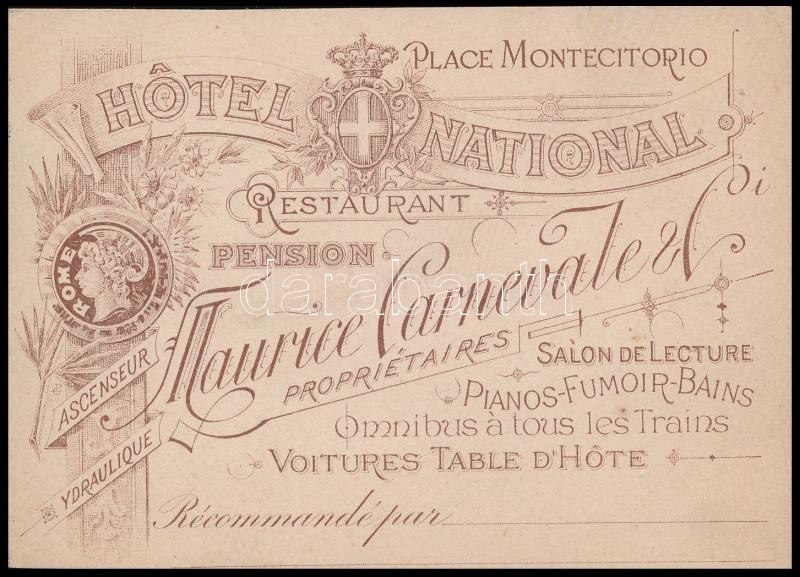 PLACE MONTECITORIO
HÔTEL
NATIONAL
RESTAURANT
PENSION
ROME
Maurice Carnevale & Ci
PROPRIÉTAIRES
ASCENSEUR
YDRAULIQUE
SALON DE LECTURE
PIANOS-FUMOIR-BAINS
Omnibus à tous les Trains
VOITURES TABLE D'HÔTE
Récommandé par
darabanth